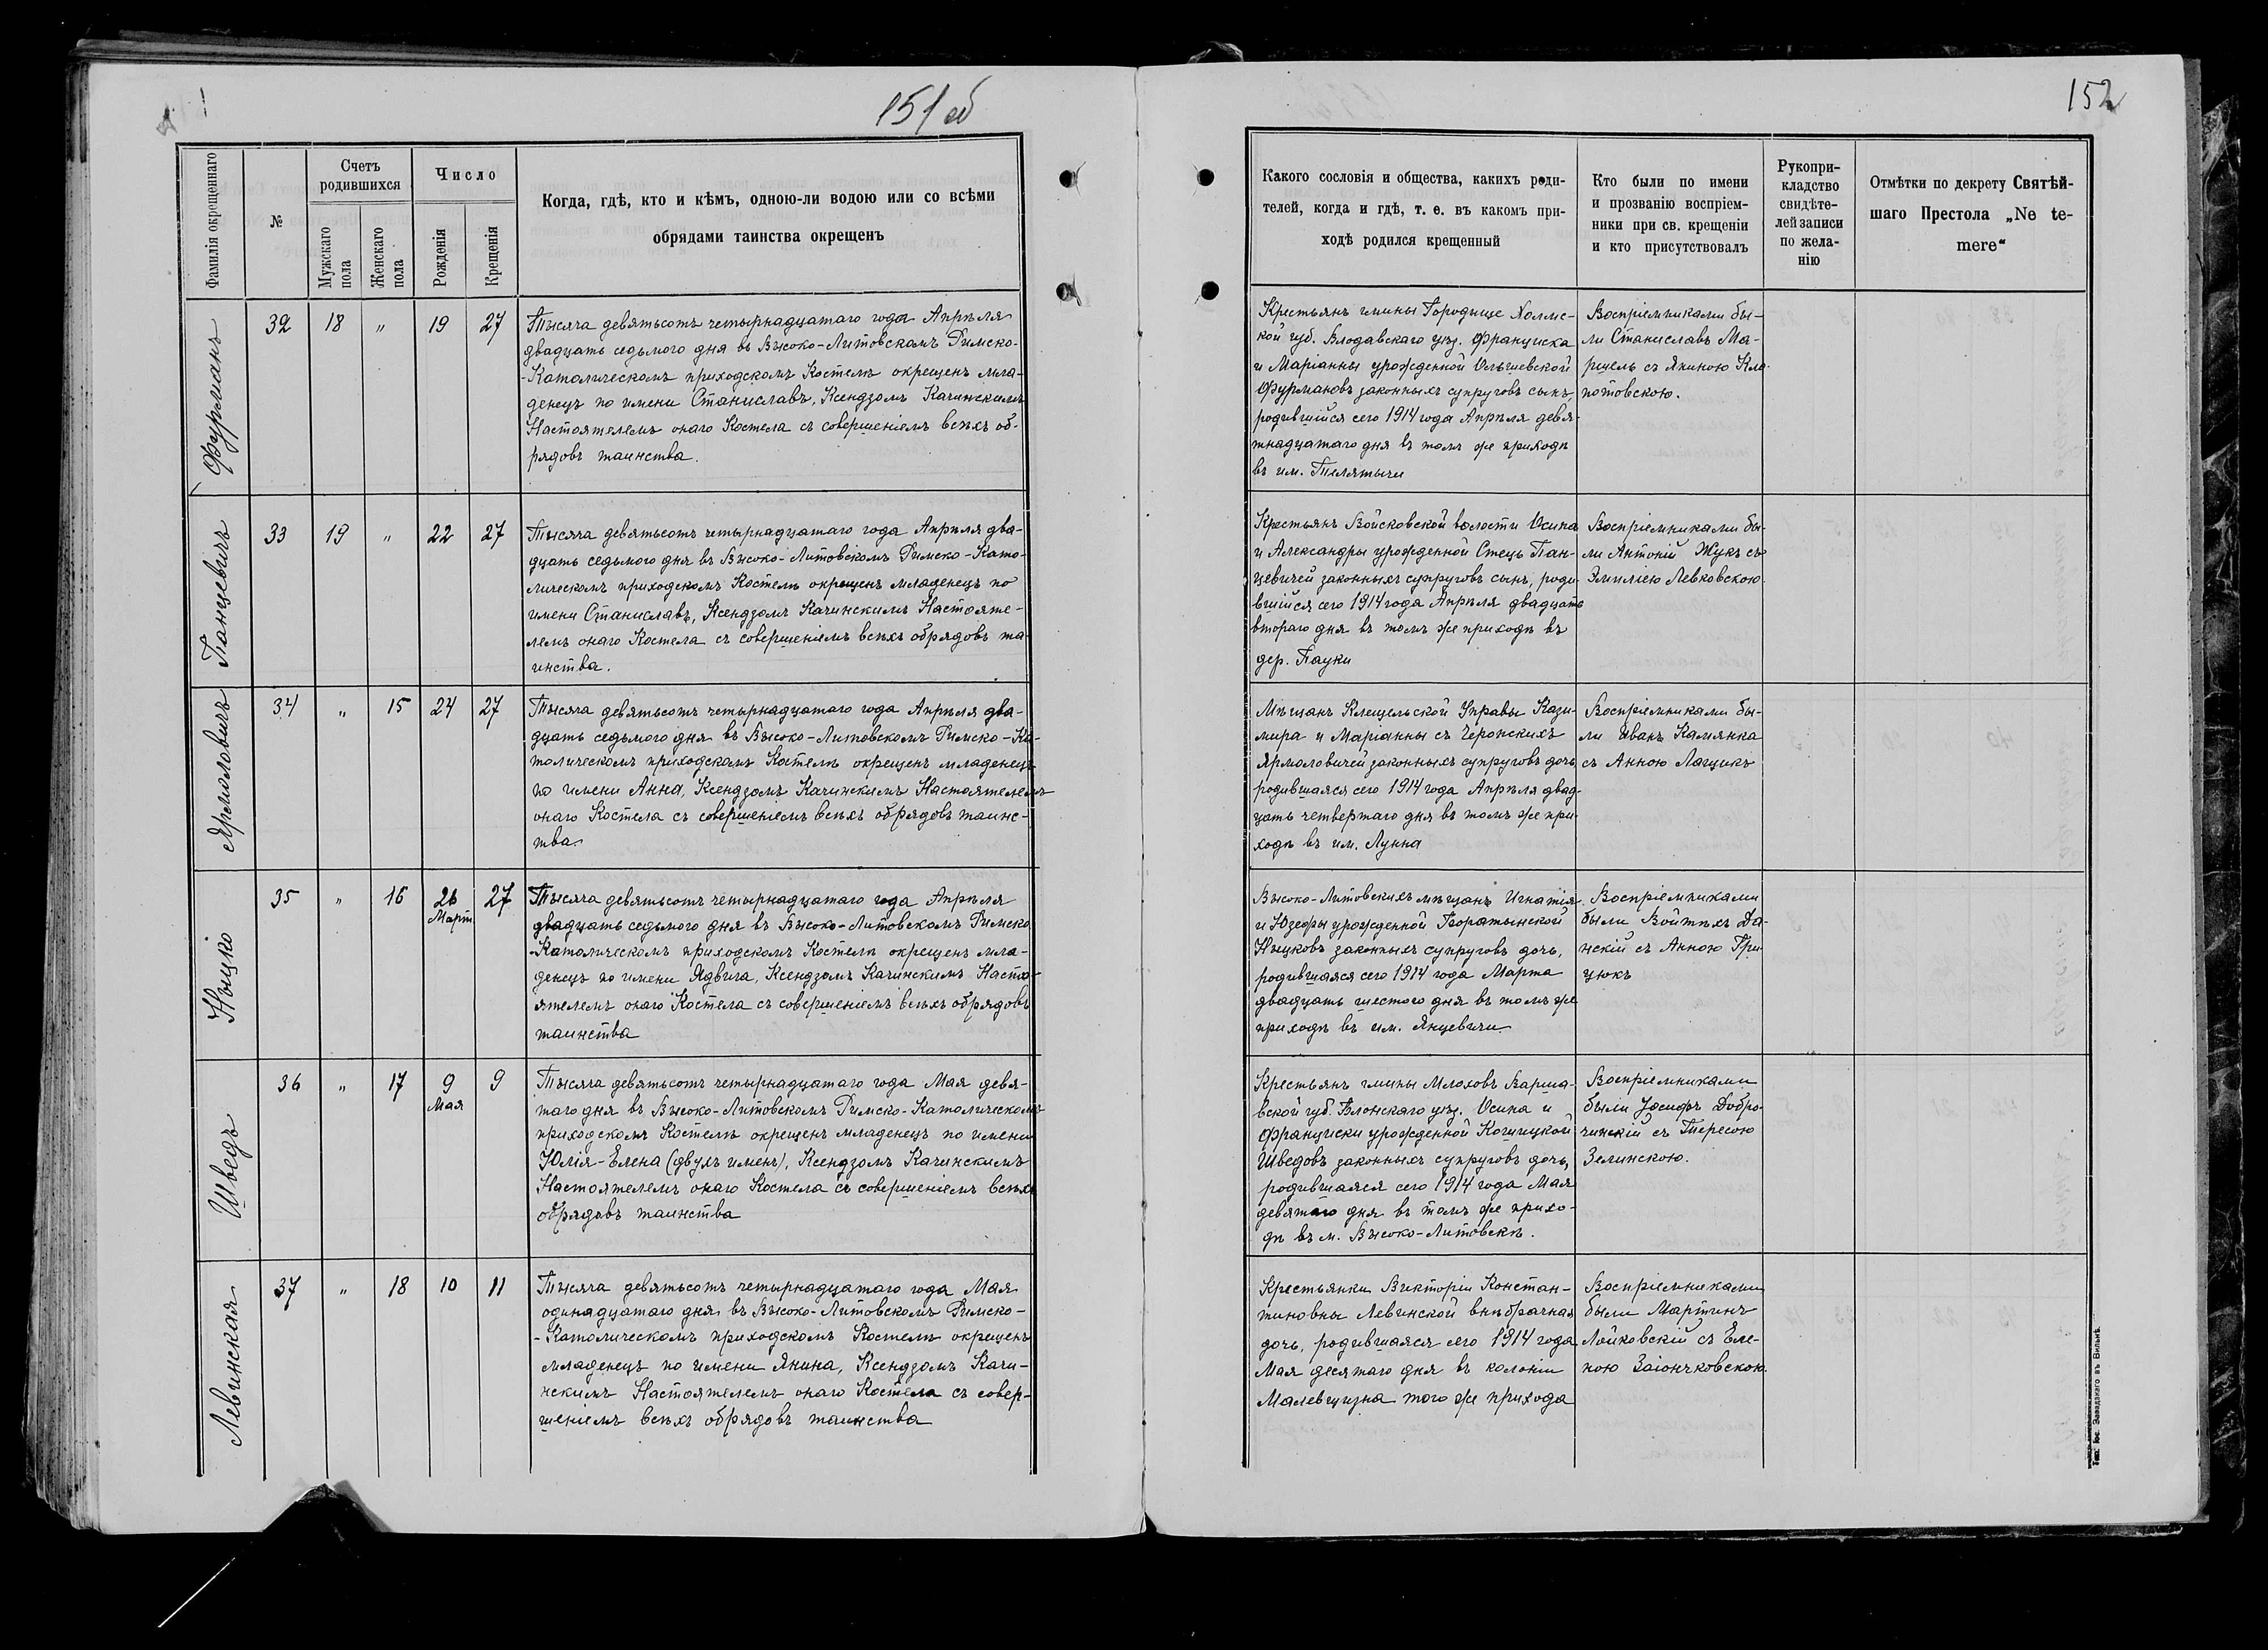 151 об
Фамилія окрещеннаго
№
Счетъ
родившихся
Мужскаго
пола
Женскаго
пола
Число
Рожденія
Крещенія
Когда, гдѣ, кто и кѣмъ, одною-ли водою или со всѣми
обрядами таинства окрещенъ
Фурманъ
32 18 " 19 27
Тысяча девятьсотъ четырнадцатаго года Апрѣля
двадцать седьмого дня въ Высоко-Литовскомъ Римско-
-Католическомъ приходскомъ Костелѣ окрещенъ мла-
денецъ по имени Станиславъ, Ксендзомъ Качинскимъ
Настоятелемъ онаго Костела съ совершеніемъ всѣхъ об-
рядовъ таинства.
Панцевичъ
33 19 " 22 27
Тысяча девятьсотъ четырнадцатаго года Апрѣля два-
дцать седьмого дня въ Высоко-Литовскомъ Римско-Като-
лическомъ приходскомъ Костелѣ окрещенъ младенецъ по
имени Станиславъ, Ксендзомъ Качинскимъ Настояте-
лемъ онаго Костела съ совершеніемъ всѣхъ обрядовъ та-
инства.
Ярмоловичъ
34 " 15 24 27
Тысяча девятьсотъ четырнадцатаго года Апрѣля два-
дцать седьмого дня въ Высоко-Литовскомъ Римско-Ка-
толическомъ приходскомъ Костелѣ окрещенъ младенецъ
по имени Анна, Ксендзомъ Качинскимъ Настоятелемъ
онаго Костела съ совершеніемъ всѣхъ обрядовъ таинс-
тва.
Ныцко
35 " 16 26 27
Март
Тысяча девятьсотъ четырнадцатаго года Апрѣля
двадцать седьмого дня въ Высоко-Литовскомъ Римско
-Католическомъ приходскомъ Костелѣ окрещенъ мла-
денецъ по имени Ядвига, Ксендзомъ Качинскимъ Насто-
ятелемъ онаго Костела съ совершеніемъ всѣхъ обрядовъ
таинства
Шведъ
36 " 17 9 9
Мая
Тысяча девятьсотъ четырнадцатаго года Мая девя-
таго дня въ Высоко-Литовскомъ Римско-Католическомъ
приходскомъ Костелѣ окрещенъ младенецъ по имени
Юлія-Елена (двухъ именъ), Ксендзомъ Качинскимъ
Настоятелемъ онаго Костела съ совершеніемъ всѣхъ
обрядовъ таинства
Левинская
37 " 18 10 11
Тысяча девятьсотъ четырнадцатаго года Мая
одинадцатаго дня въ Высоко-Литовскомъ Римско-
-Католическомъ приходскомъ Костелѣ окрещенъ
младенецъ по имени Янина, Ксендзомъ Качи-
нскимъ Настоятелемъ онаго Костела съ совер-
шеніемъ всѣхъ обрядовъ таинства
152
Какого сословія и общества, какихъ роди-
телей, когда и гдѣ, т. е. въ какомъ при-
ходѣ родился крещенный
Кто были по имени
и прозванію воспріем-
ники при св. крещеніи
и кто присутствовалъ
Рукопри-
кладство
свидѣте-
лей записи
по жела-
нію
Отмѣтки по декрету Святѣй-
шаго Престола „Ne te-
mere“
Крестьянъ гмины Городище Холмс-
кой губ. Влодавскаго уѣз. Франциска
и Маріанны урожденной Ольшевской
Фурмановъ законныхъ супруговъ сынъ,
родившійся сего 1914 года Апрѣля девя-
тнадцатаго дня въ томъ же приходѣ
въ им. Телятычи
Воспріемниками бы-
ли Станиславъ Ма-
рцель съ Яниною Кло-
потовскою.
Крестьянъ Войсковской волости Осипа
и Александры урожденной Стецъ Пан-
цевичей законныхъ супруговъ сынъ, роди-
вшійся сего 1914 года Апрѣля двадцать
втораго дня въ томъ же приходѣ въ
дер. Пауки
Воспріемниками бы-
ли Антоній Жукъ съ
Эмиліею Левковскою.
Мѣщанъ Клещельской Управы Кази-
мира и Маріанны съ Черонскихъ
Ярмоловичей законныхъ супруговъ дочь
родившаяся сего 1914 года Апрѣля двад-
цать четвертаго дня въ томъ же при-
ходѣ въ им. Лунна
Воспріемниками бы-
ли Иванъ Камянка
съ Анною Лащикъ
Высоко-Литовскихъ мѣщанъ Игнатія
и Юзефы урожденной Горатынской
Ныцковъ законныхъ супруговъ дочь,
родившаяся сего 1914 года Марта
двадцать шестого дня въ томъ же
приходѣ въ им. Янцевичи
Воспріемниками
были Войтѣхъ Да-
нскій съ Анною Гри-
цюкъ
Крестьянъ гмины Млоховъ Варша-
вской губ. Блонскаго уѣз. Осипа и
Франциски урожденной Кошицкой
Шведовъ законныхъ супруговъ дочь,
родившаяся сего 1914 года Мая
девятаго дня въ томъ же прихо-
дѣ въ м. Высоко-Литовскѣ.
Воспріемниками
были Іосифъ Добро-
чинскій съ Тересою
Зелинскою.
Крестьянки Викторіи Констан-
тиновны Левинской внѣбрачная
дочь, родившаяся сего 1914 года
Мая десятаго дня въ колоніи
Малевщизна того же прихода
Воспріемниками
были Мартинъ
Лойковскій съ Еле-
ною Заіончковскою.
Тип. Іос. Завадзкаго въ Вильнѣ.